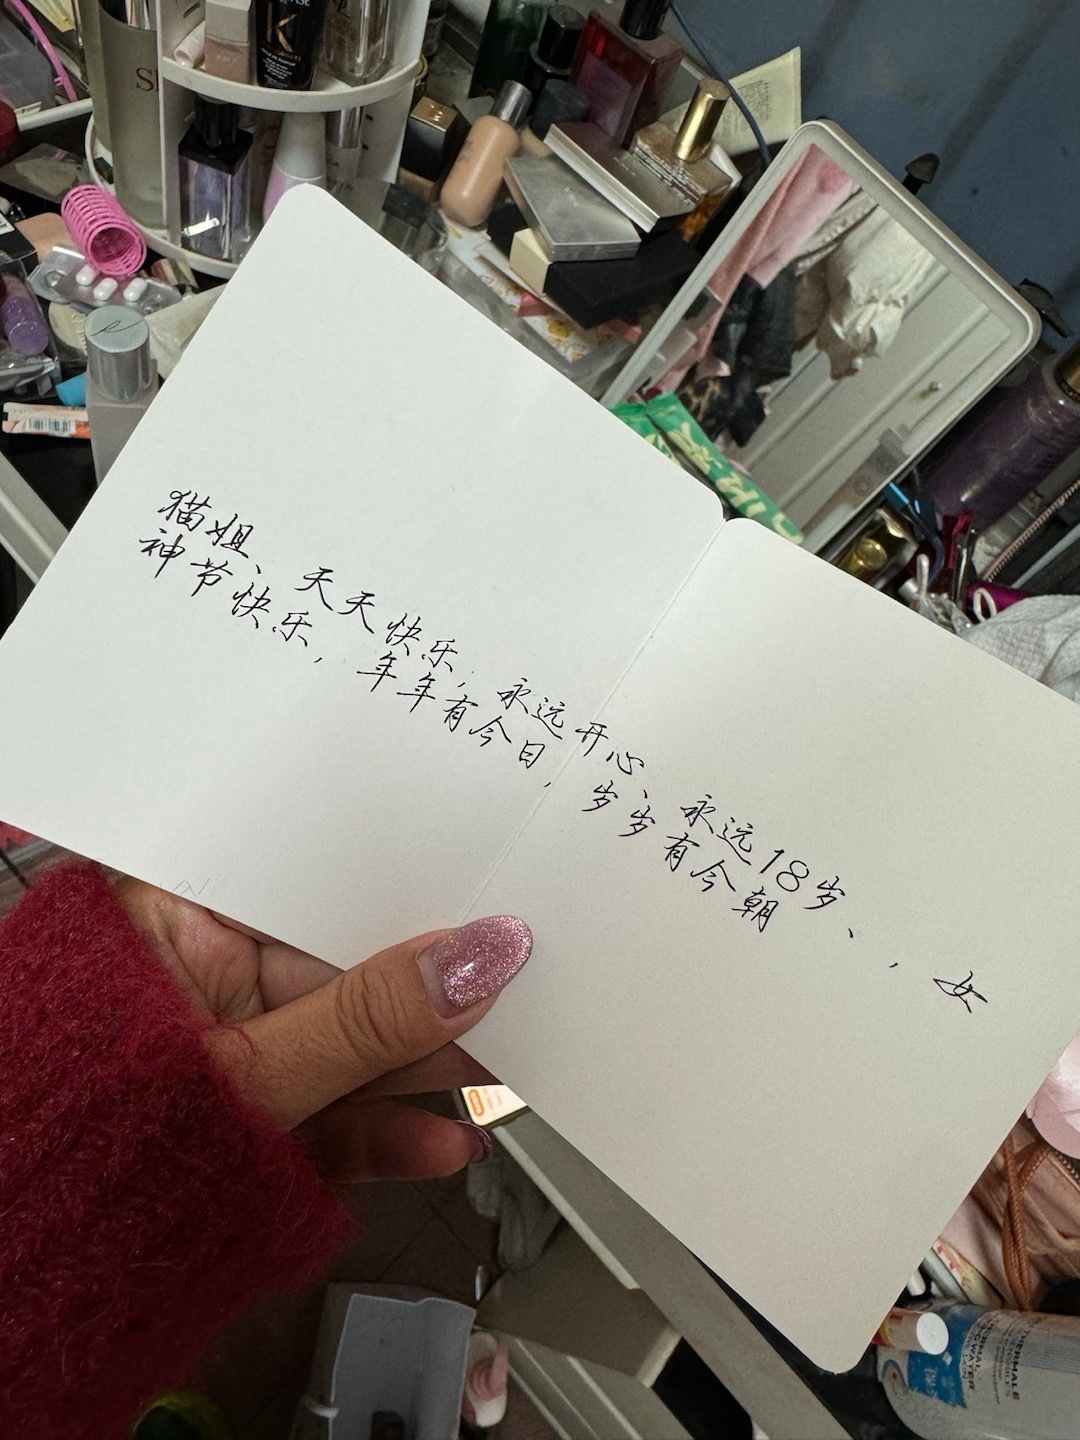 猫姐、天天快乐，永远开心、永远18岁、，女
神节快乐，年年有今日，岁岁有今朝
THERMALE